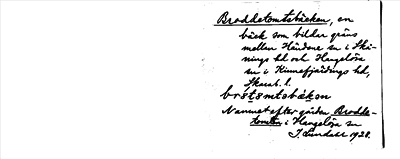 Broddetomtsbäcken, en
bäck som bildar gräns
mellan Händene sn i Skå-
nings hd och Hangelösa
sn i Kinnefjärdings hd,
Skarab. l.
Namnet efter gården Brodde-
tomten i Hangelösa sn
J. Lundahl 1928.